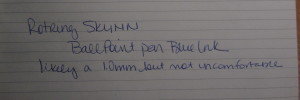 Rotring SKYNN
Ball Point pen Blue Ink
likely a 1.0mm, but not uncomfortable